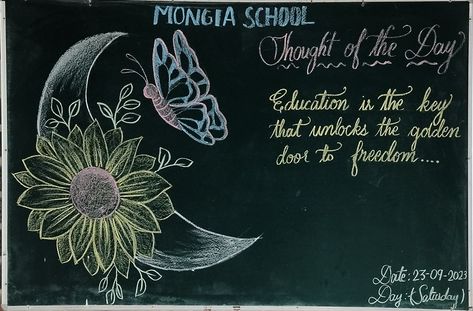 MONGIA SCHOOL
Thought of the Day
Education is the key
that unlocks the golden
door to freedom....
Date: 23-09-2023
Day: (Saturday)